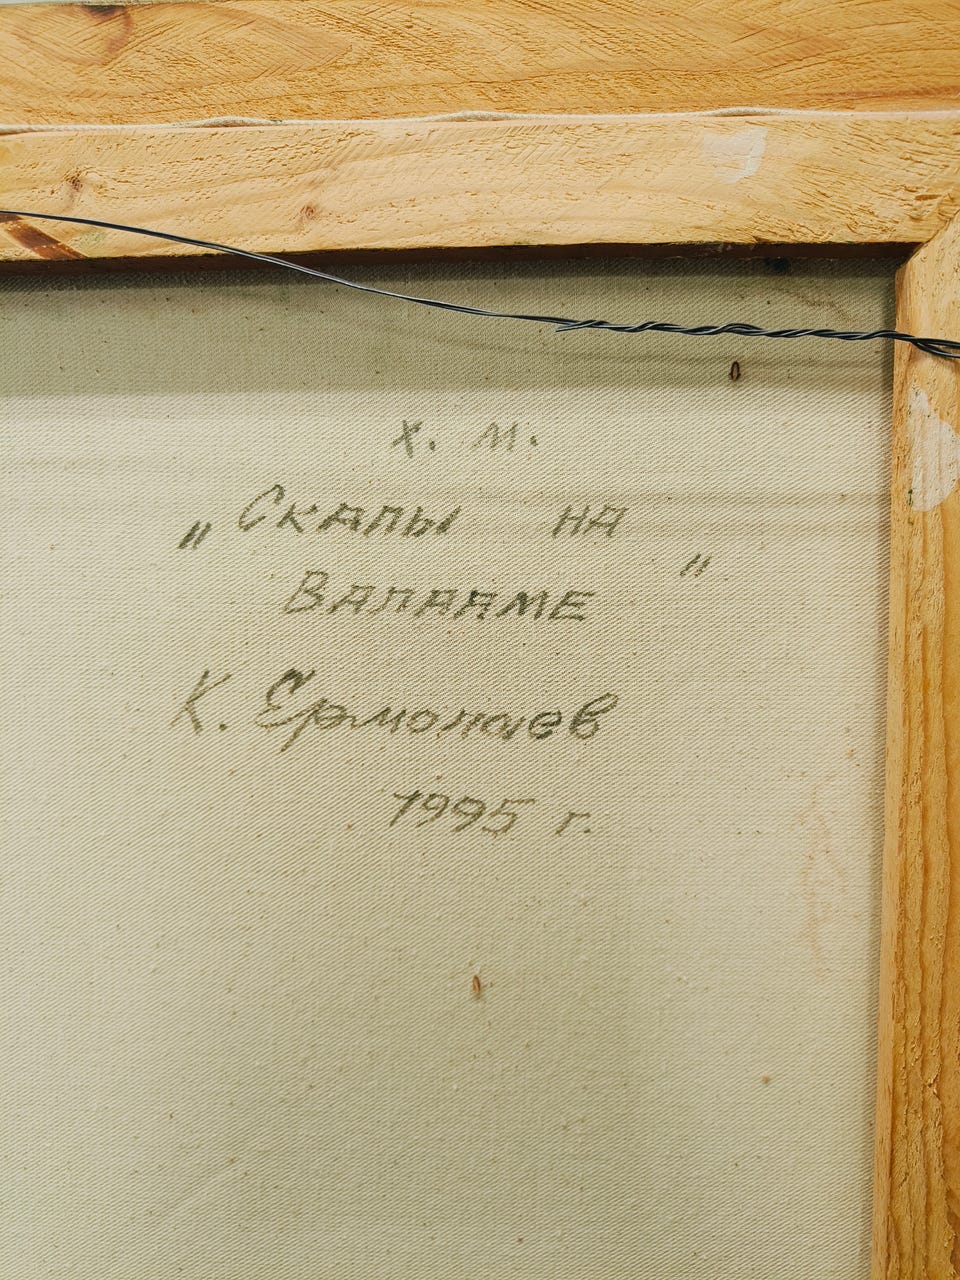 х. м.
„Скалы на
Валааме"
К. Ермолаев
1995 г.